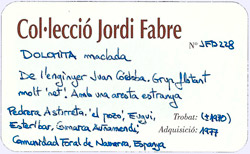 Col·lecció Jordi Fabre
Nº JFD228
DOLOMITA maclada
De l'enginyer Juan Cordoba. Grup flotant
molt 'net'. Amb una aresta estranya
Pedrera Astirreta, 'el pozo', Eugui, Trobat: (±1970)
Esteribar, Comarca Auñamendi, Adquisició: 1977
Comunidad Foral de Navarra, Espanya